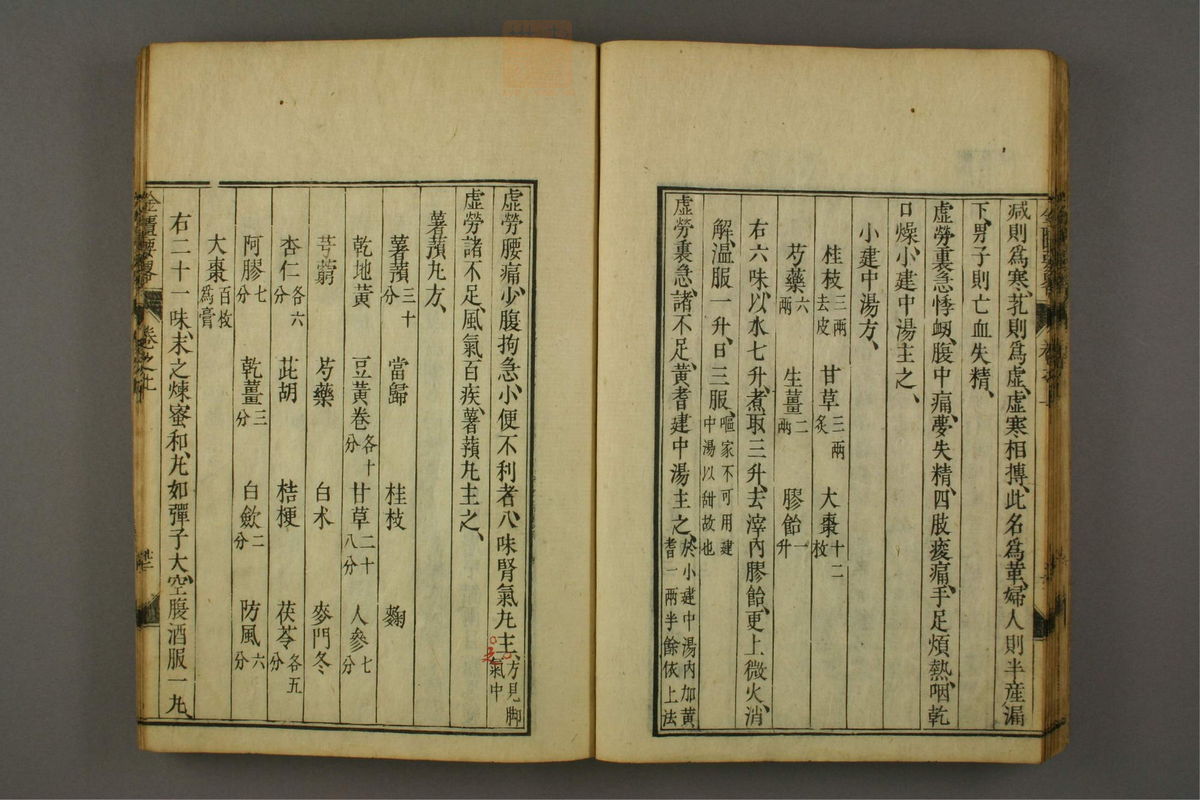 減則爲寒、芤則爲虛、虛寒相搏、此名爲革、婦人則半産漏
下、男子則亡血失精、
虛勞裏急、悸衂、腹中痛、夢失精、四肢痠痛、手足煩熱、咽乾
口燥、小建中湯主之、
小建中湯方、
桂枝三兩去皮 甘草三兩炙 大棗十二枚
芍藥六兩 生薑二兩 膠飴一升
右六味、以水七升、煮取三升、去滓、內膠飴、更上微火、消
解、温服一升、日三服、嘔家不可用建中湯以甜故也
虛勞裏急、諸不足、黃耆建中湯主之、於小建中湯內加黃耆一兩半餘依上法
虛勞腰痛、少腹拘急、小便不利者、八味腎氣丸主之、方見脚氣中
虛勞諸不足、風氣百疾、薯蕷丸主之、
薯蕷丸方、
薯蕷三十分 當歸 桂枝 麴
乾地黃 豆黃卷各十分 甘草二十八分 人參七分
芎藭 芍藥 白术 麥門冬
杏仁各六分 茈胡 桔梗 茯苓各五分
阿膠七分 乾薑三分 白歛二分 防風六分
大棗百枚爲膏
右二十一味、末之、煉蜜和、丸如彈子大、空腹酒服一丸、
金匱要畧 卷之上